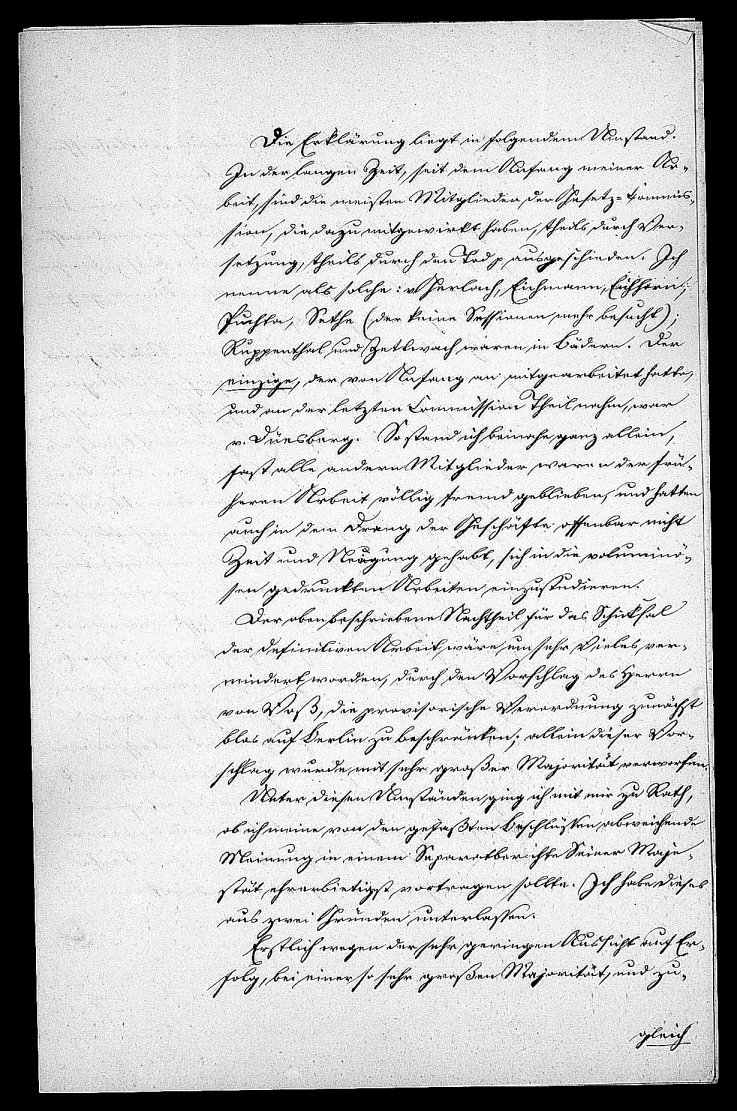 Die Erklärung liegt in folgendem Umstand.
In der langen Zeit, seit dem Anfang meiner Ar-
beit, sind die meisten Mitglieder der Gesetz=Commis-
sion, die dazu mitgewirkt haben, theils durch Ver-
setzung, theils durch den Tod p ausgeschieden. Ich
nenne als solche: v Gerlach, Eichmann, Eichhorn,
Puchta, Sethe (der keine Sessionen mehr besucht);
Ruppenthal und Zettwach waren in Bädern. Der
einzige, der von Anfang an mitgearbeitet hatte,
und an der letzten Commission Theil nahm, war
v. Düesberg. So stand ich beinahe ganz allein,
fast alle andern Mitglieder waren der frü-
heren Arbeit völlig fremd geblieben, und hatten
auch in dem Drang der Geschäfte offenbar nicht
Zeit und Neigung gehabt, sich in die voluminö-
sen gedruckten Arbeiten einzustudieren.
Der oben beschriebene Nachtheil für das Schicksal
der definitiven Arbeit wäre um sehr Vieles ver-
mindert worden, durch den Vorschlag des Herrn
von Voß, die provisorische Verordnung zunächst
blos auf Berlin zu beschränken; allein dieser Vor-
schlag wurde mit sehr großer Majorität verworfen.
Unter diesen Umständen ging ich mit mir zu Rath,
ob ich meine von den gefaßten Beschlüssen abweichende
Meinung in einem Separatberichte Seiner Maje-
stät ehrerbietigst vortragen sollte. Ich habe dieses
aus zwei Gründen unterlassen.
Erstlich wegen der sehr geringen Aussicht auf Er-
folg, bei einer so sehr großen Majorität, und zu-
gleich